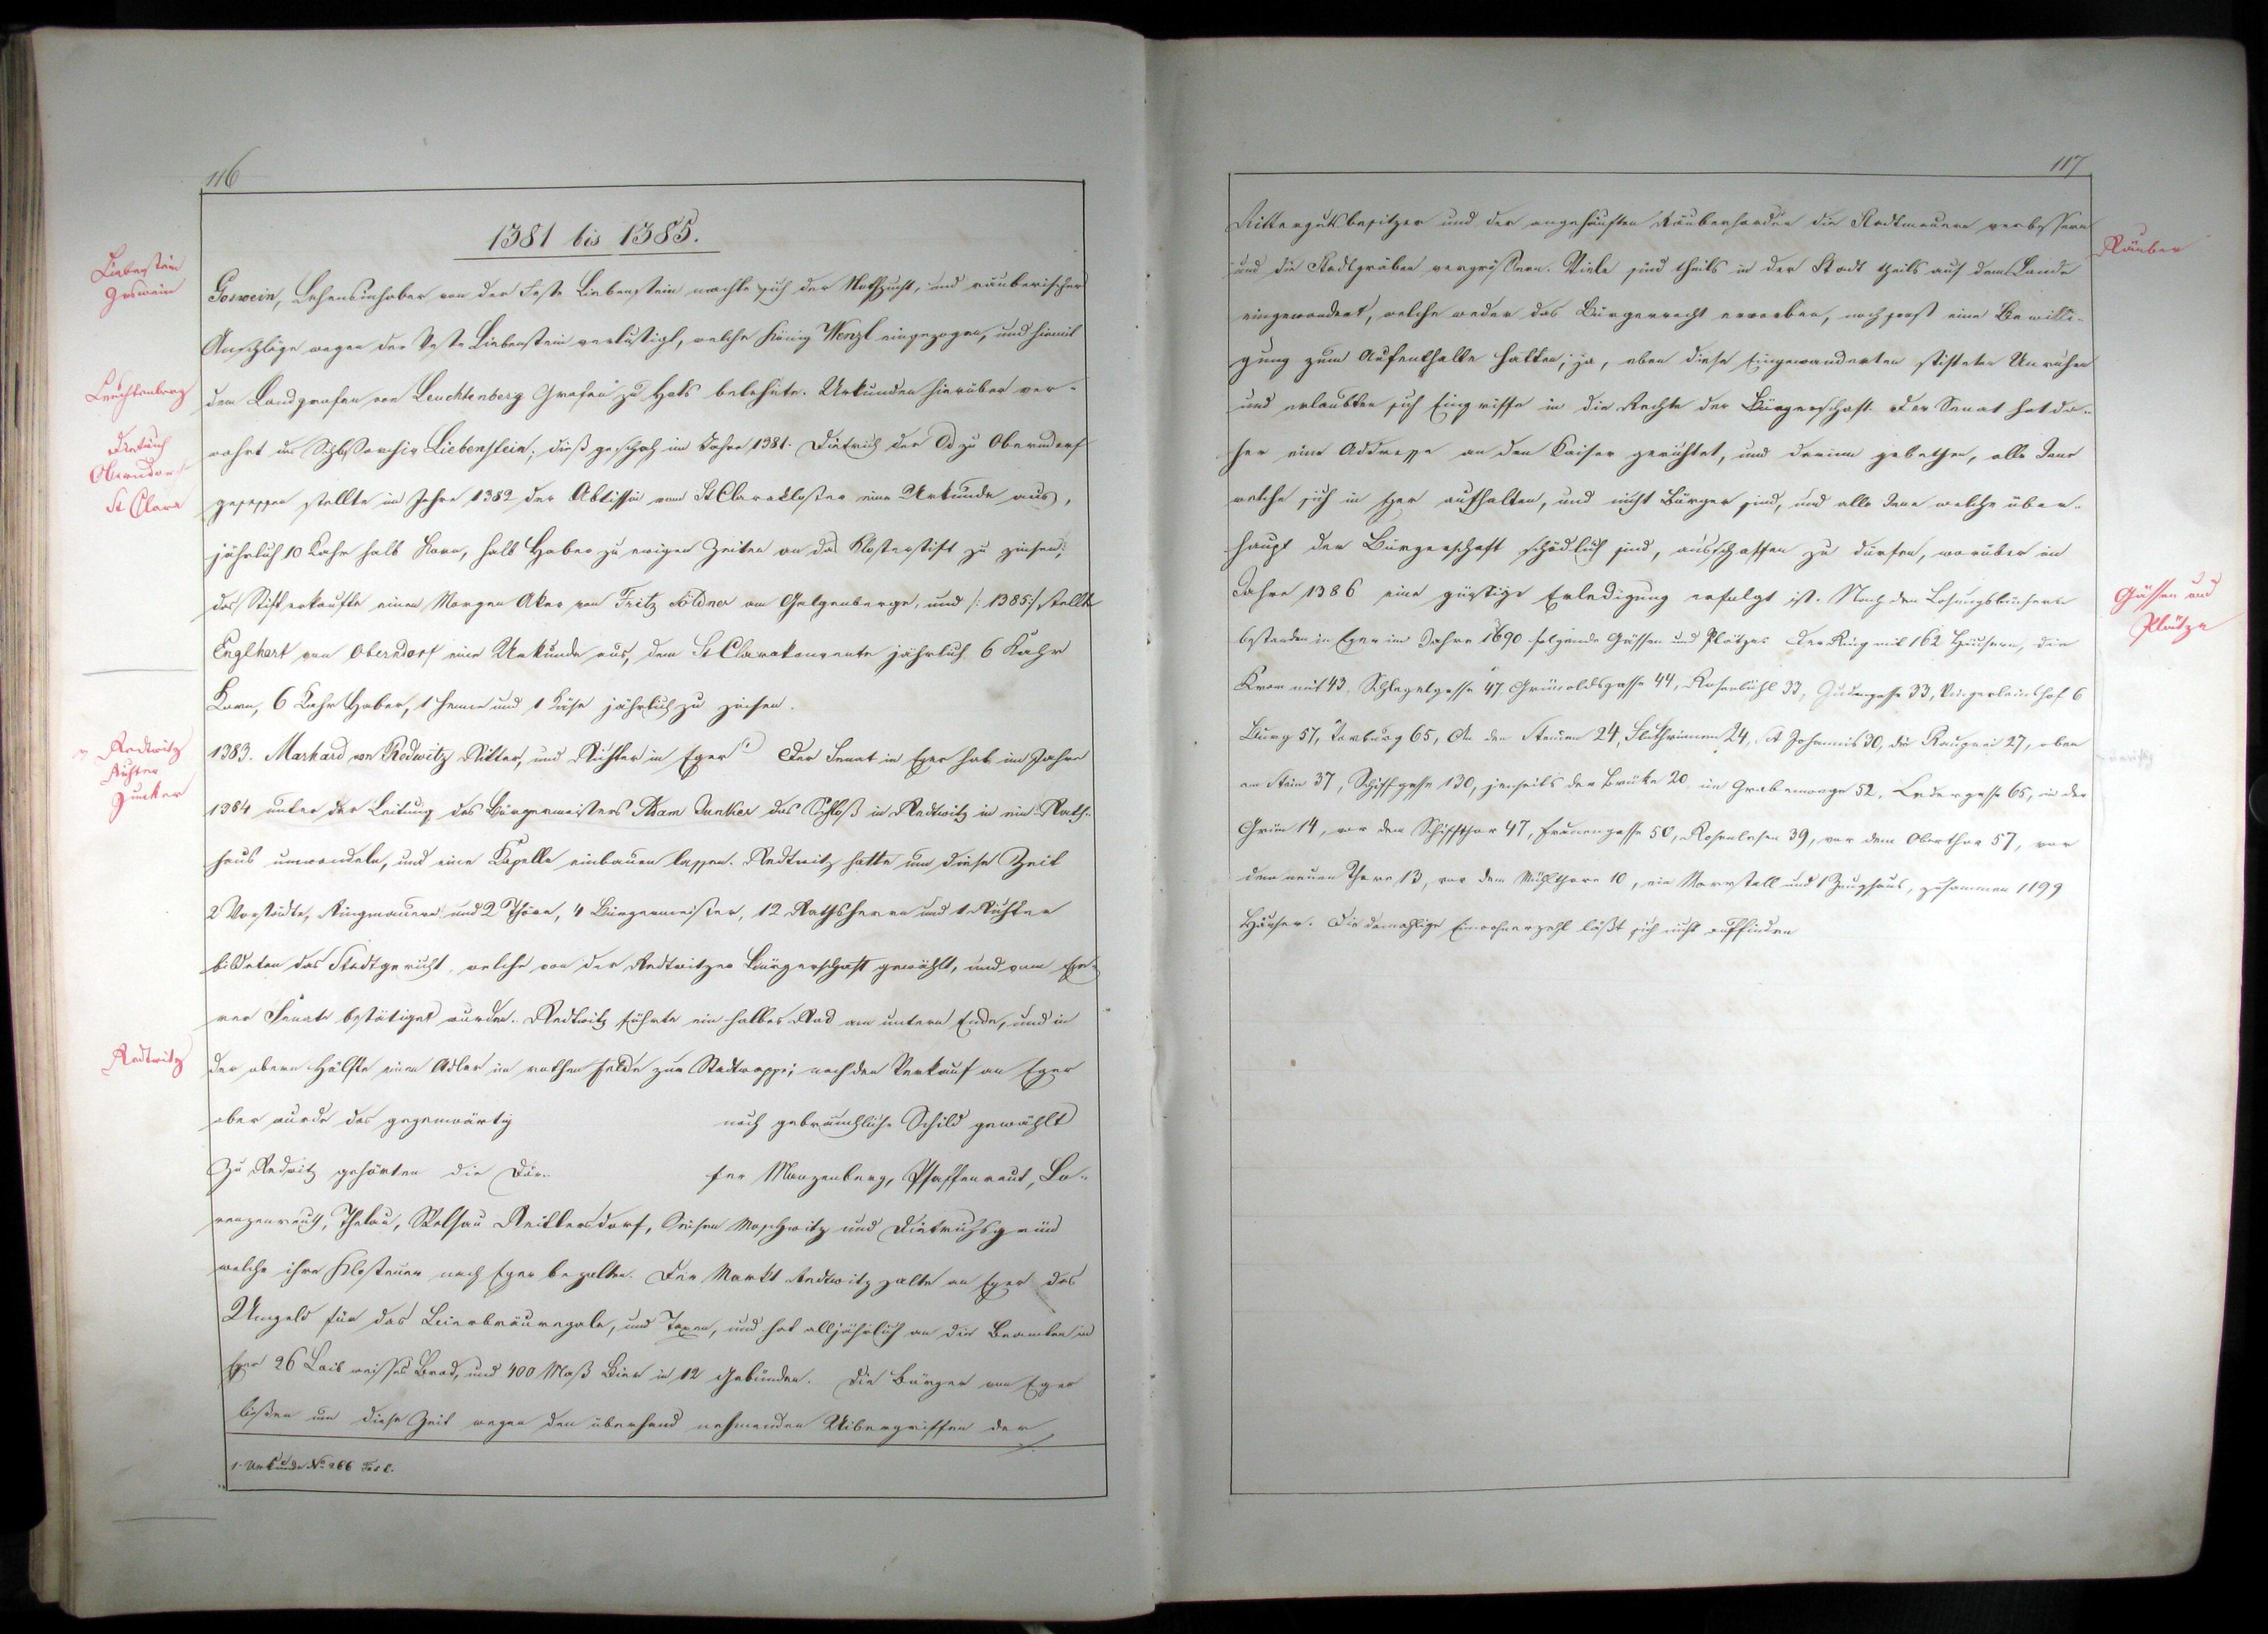 116
1381 bis 1385.
Liebenstein
Goswein
Goswein, Lehensinhaber von der Feste Liebenstein machte sich der Nothzucht, und räuberischer
Anschläge wegen der Veste Liebenstein verlustigt, welche König Wenzl eingezogen, und hiemit
Leuchtenberg
den Landgrafen von Leuchtenberg Grafen zu Hals belehnte. Urkunden hierüber ver-
Dietrich
Oberndorf
wahrt das Schloßarchiv Liebenstein; dieß geschah im Jahre 1381. Dietrich der Od zu Oberndorf
St Clara
gesessen stellte im Jahre 1382 der Abtissin vom St Clarakloster eine Urkunde aus,
jährlich 10 Kahr halb Korn, halb Haber zu ewigen Zeiten an das Klosterstift zu zinsen;
das Stift erkaufte einen Morgen Aker von Fritz Söldner am Galgenberge, und /: 1385 :/ stellte
Englhart von Oberndorf eine Urkunde aus, dem St Clarakonvente jährlich 6 Kahr
Korn, 6 Kahr Haber, 1 Henne und 1 Käse jährlich zu zinsen.
v Redtwitz
Richter
Junker
1383. Markard von Redwitz Ritter, und Richter in Eger 1) Der Senat in Eger hat im Jahre
1384 unter der Leitung des Bürgermeisters Adam Junker das Schloß in Redtwitz in ein Rath-
haus umwandeln, und eine Kapelle einbauen lassen. Redtwitz hatte um diese Zeit
2 Vorstädte, Ringmauern und 2 Thore, 4 Bürgermeister, 12 Rathsherrn und 1 Richter
bildeten das Stadtgericht, welche von der Redtwitzer Bürgerschaft gewählt, und vom Ege-
rer Senate bestätiget wurden. Redtwitz führte ein halbes Rad am untern Ende, und in
Redtwitz
der obern Hälfte einen Adler im rothen Felde zur Stadtwappe; nach den Verkauf an Eger
aber wurde das gegenwärtig noch gebräuchliche Schild gewählt
Zu Redwitz gehörten die Dör- fer Manzenberg, Pfaffenreut, Lo-
renzenreuth, Thelau, Wölsau Reittersdorf, Seußen Moschwitz und Dietrichsgrün
welche ihre Klosteuer nach Eger bezalten. Der Markt Redtwitz zalte an Eger das
Umgeld für das Bierbräuregale, und Taxen, und hat alljährlich an die Beamten in
Eger 26 Laib weisses Brod, und 400 Maß Bier in 12 Gebünden. Die Bürger von Eger
ließen um diese Zeit wegen den überhand nehmenden Uibergriffen der
1. Urkunde No 266
117
Rittergutsbesitzer und der angehäuften Räuberhorden die Stadtmauern verbessern
Räuber
und die Stadtgräben vergrößern. Viele sind theils in der Stadt theils auf dem Lande
eingewandert, welche weder das Bürgerrecht erworben, noch sonst eine Bewilli-
gung zum Aufenthalte hatten; ja, eben diese Eingewanderten stifteten Unruhen
und erlaubten sich Eingriffe in die Rechte der Bürgerschaft. Der Senat hat da-
her eine Addresse an den Kaiser gerichtet, und darinn gebethen, alle Jene
welche sich in Eger aufhalten, und nicht Bürger sind, und alle Jene welche über-
haupt der Bürgerschaft schädlich sind, ausschaffen zu dürfen, worüber im
Jahre 1386 eine günstige Erledigung erfolgt ist. Nach den Losungsbüchern
Gässen und
Plätze
bestanden in Eger im Jahre 1690 folgende Gässen und Plätze: Der Ring mit 162 Häusern, die
Kron mit 43, Schlegelgasse 47, Grünoldsgasse 44, Rosenbühl 33, Judengasse 33, Bingerleinshof 6
Burg 57, Vorburg 65, An den Steinen 24, Bluthrinnen 24, St Johannis 30, die 27, oben
am Stein 37, Schiffgasse 130, jenseits der Brüke 20 im 52, Ledergasse 65, in der
Grün 14, vor dem Schiffthor 47, Frauengasse 50, 39, vor dem Oberthor 57, vor
den neuen Thore 13, vor dem Mühlthore 10, ein Marstall und 1 Zeughaus, zusammen 1199
Häuser. Die damahlige Einwohnerzahl läßt sich nicht auffinden